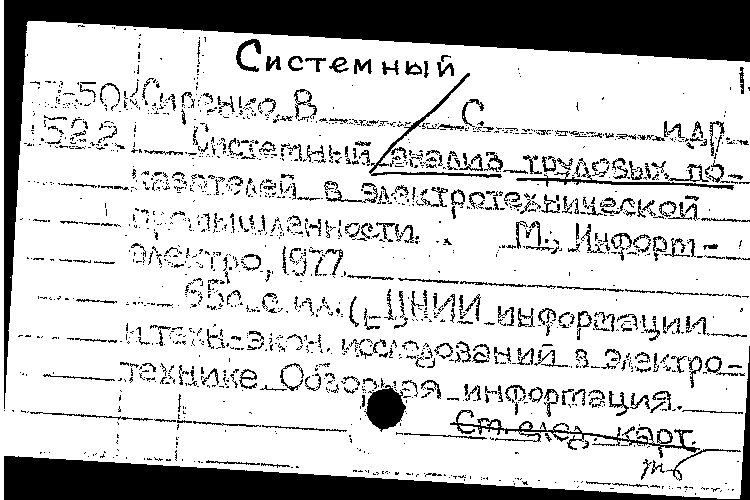 Системный
Сиренко В. С. и др.
1522 Системный анализ трудовых по-
казателей в электротехнической
промышленности. М., Информ-
электро, 1977.
65 с. с ил. ( ЦНИИ информации
и техн.-экон. исследований в электро-
технике. Обзорная информация.
Ст. след. карт.